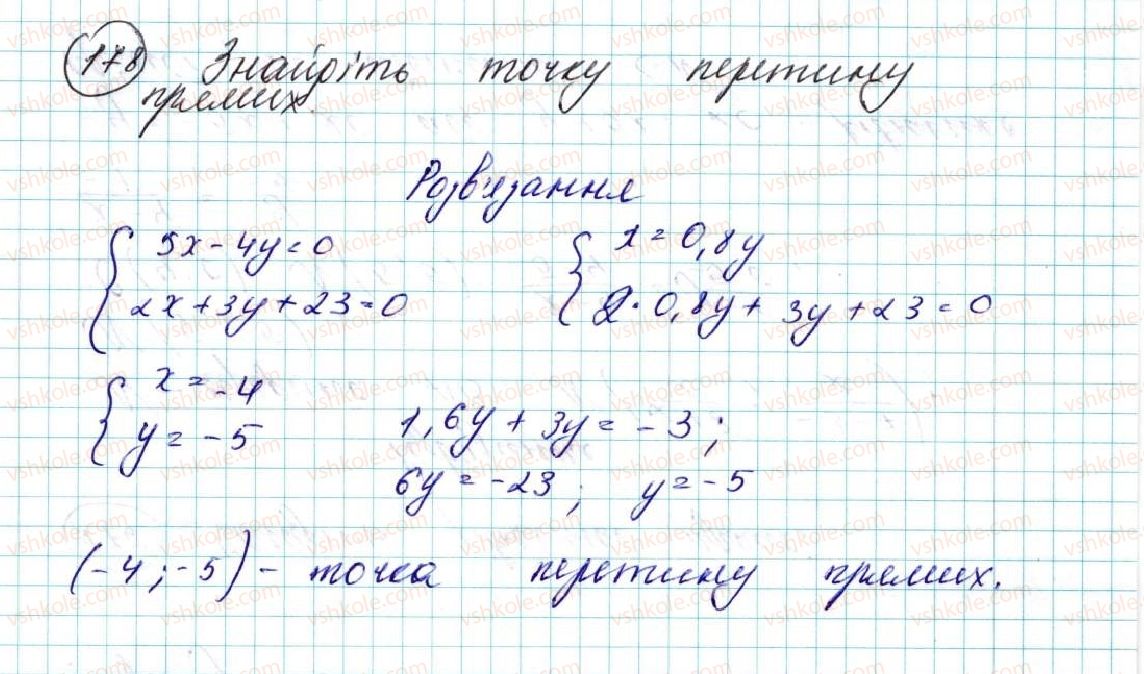 178 Знайдіть точку перетину
прямих.
Розв'язання
{ 5x - 4y = 0
2x + 3y + 23 = 0
{ x = 0,8y
2 · 0,8y + 3y + 23 = 0
{ x = -4
y = -5
1,6y + 3y = -3;
6y = -23; y = -5
(-4; -5) - точка перетину прямих.